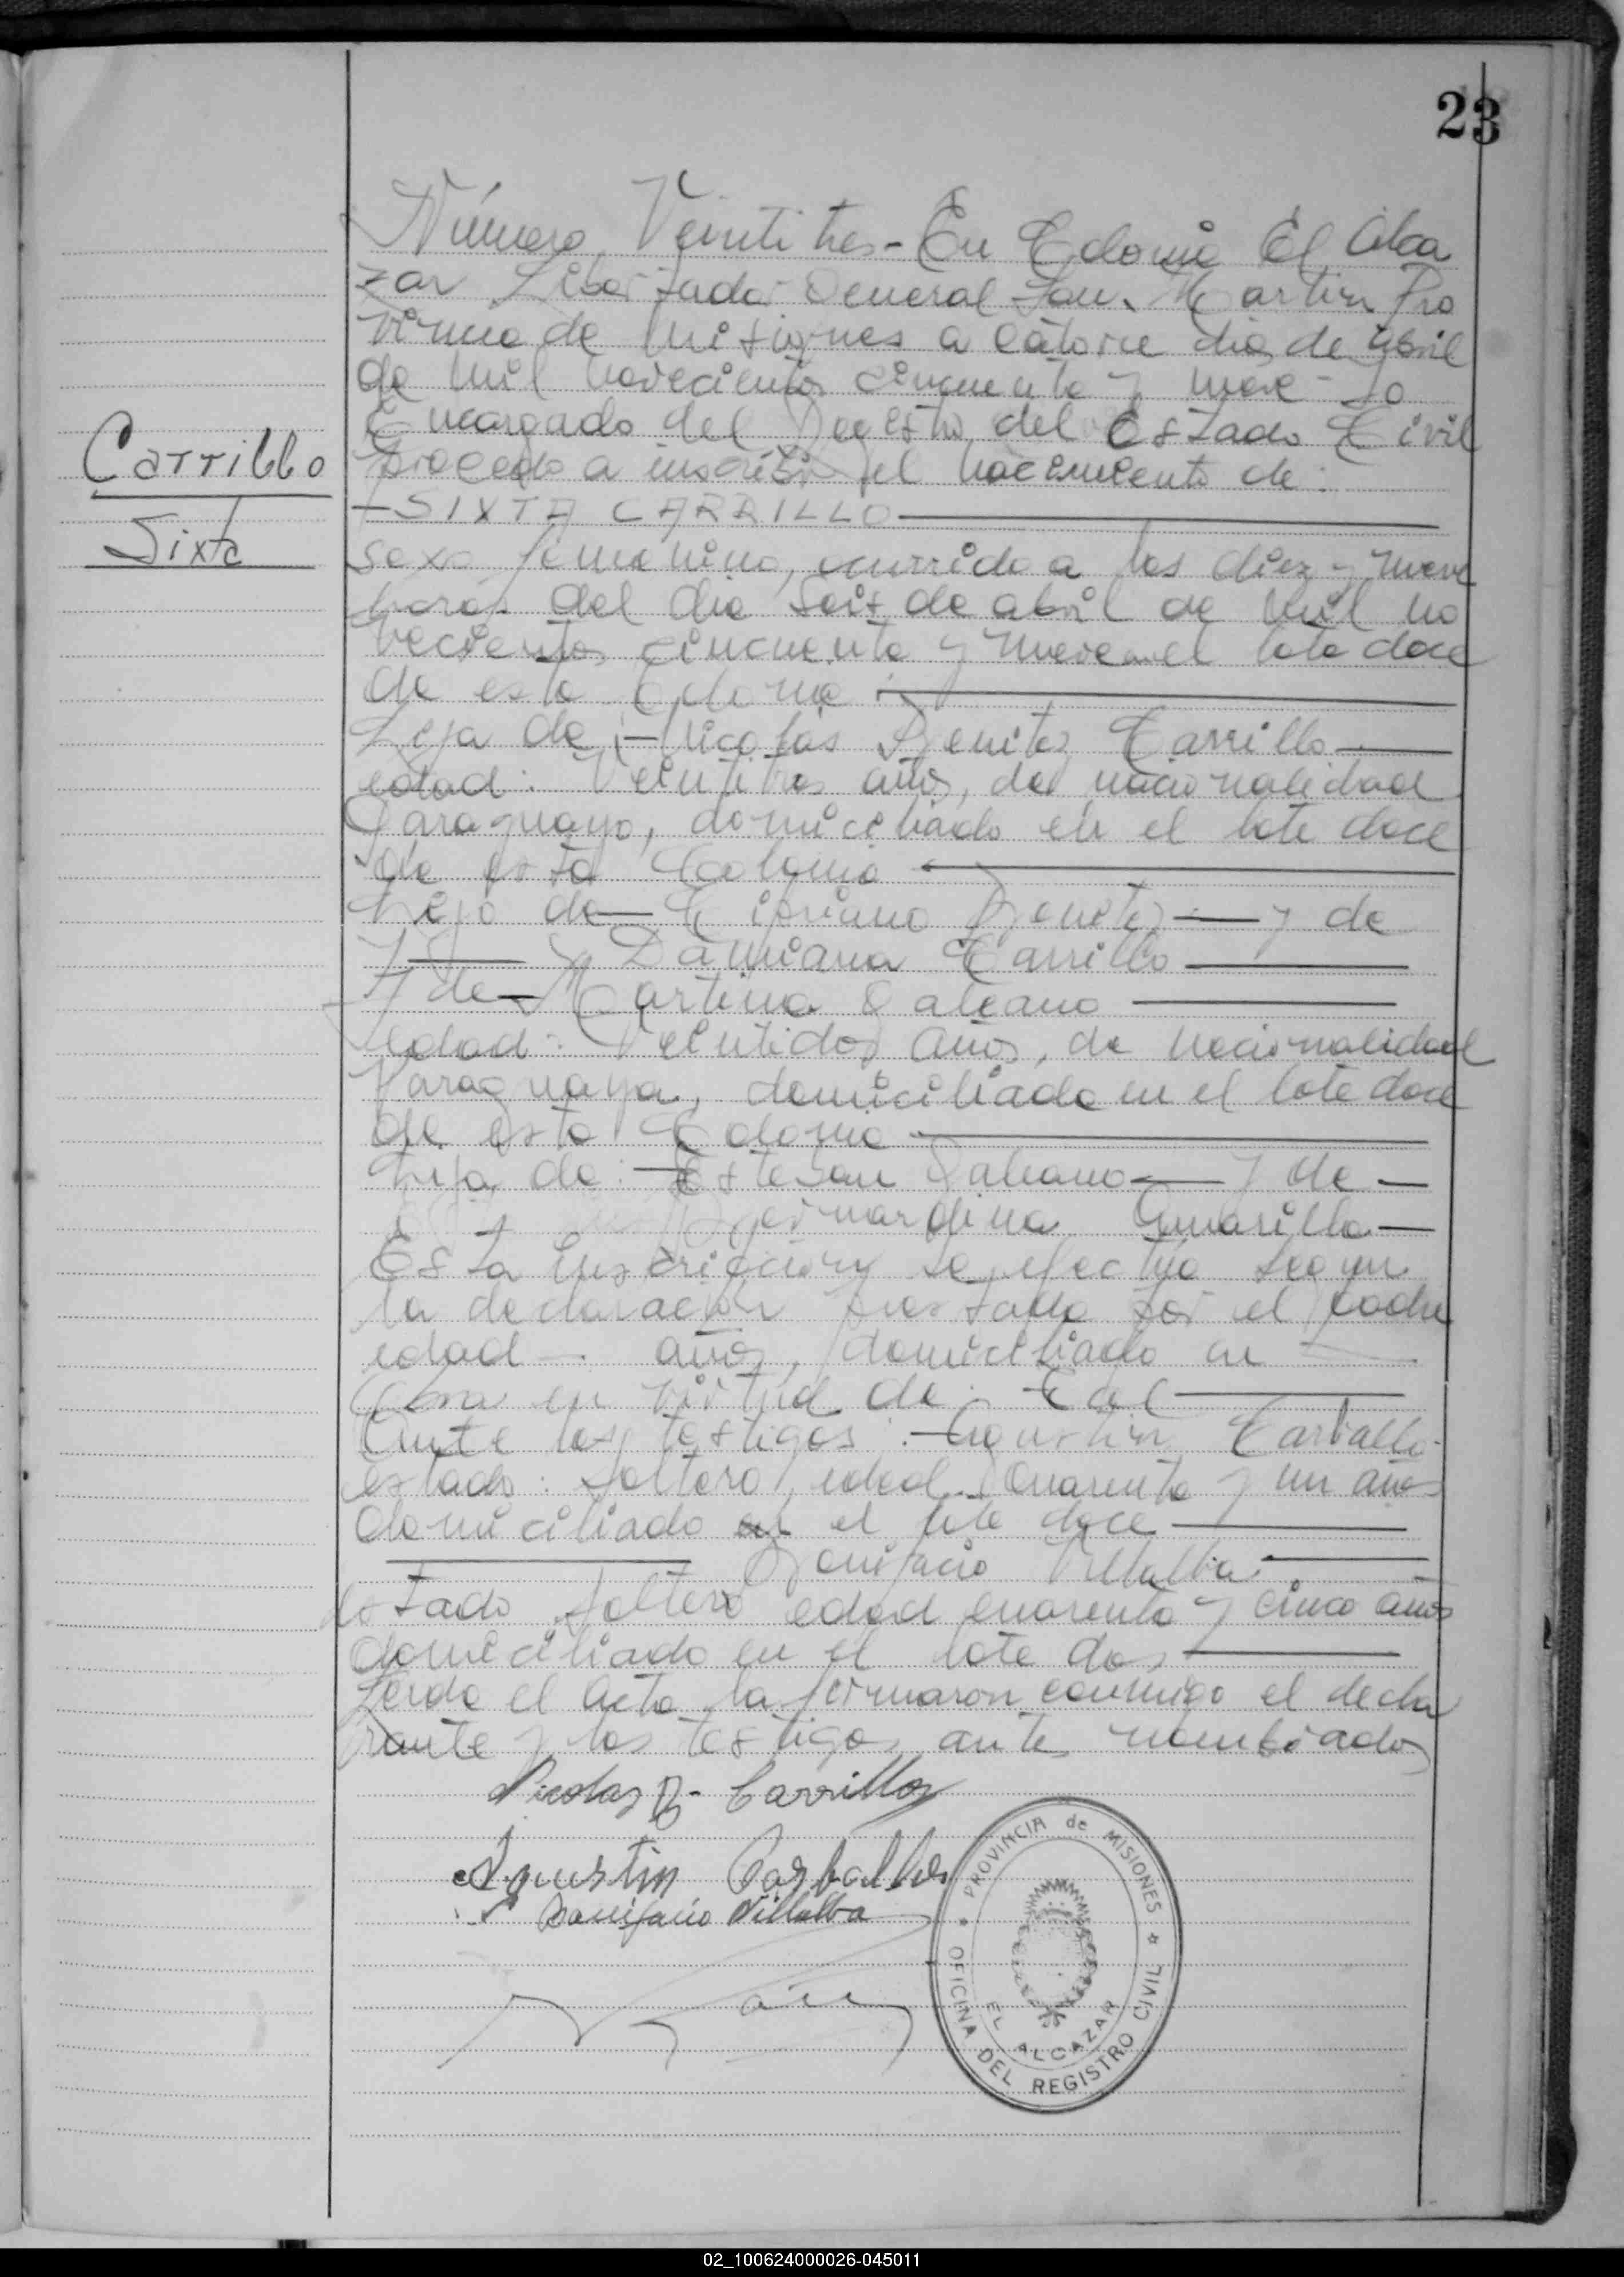 23
Número Veintitres - En Colonia El Alca
zar Libertador General San Martin Pro
vincia de Misiones a catorce dias de abril
de mil novecientos cincuenta y nueve Yo
Encargado del Registro del Estado Civil
procedo a inscribir el nacimiento de:
Carrillo
Sixta
- SIXTA CARRILLO
sexo femenino, ocurrido a las diez y nueve
horas del dia seis de abril de mil no
vecientos cincuenta y nueve en el lote doce
de esta Colonia
Hija de: - Nicolás Benitez Carrillo
edad: Veintitres años, de nacionalidad
Paraguayo, domiciliado en el lote doce
de esta Colonia
hijo de - Cipriano Benitez - y de
Damiana Carrillo
Y de - Martina Galeano
edad: Veintidos años, de nacionalidad
Paraguaya, domiciliada en el lote doce
de esta Colonia
hija de: - Esteban Galeano - y de -
Bernardina Amarilla -
Esta inscripción se efectúa segun
la declaración prestada por el padre
edad - años, domiciliado en
obra en virtud de: - El
Ante los testigos: - Agustin Carballo
estado: soltero, edad Cuarenta y un años
domiciliado en el lote doce
Bonifacio Villalba
estado soltero edad cuarenta y cinco años
domiciliado en el lote dos
Leida el Acta la firmaron conmigo el decla
rante y los testigos antes nombrados
Nicolas B. Carrillo
Agustin Carballo
Bonifacio Villalba
PROVINCIA de MISIONES
OFICINA DEL REGISTRO CIVIL
EL ALCAZAR
02_100624000026-045011